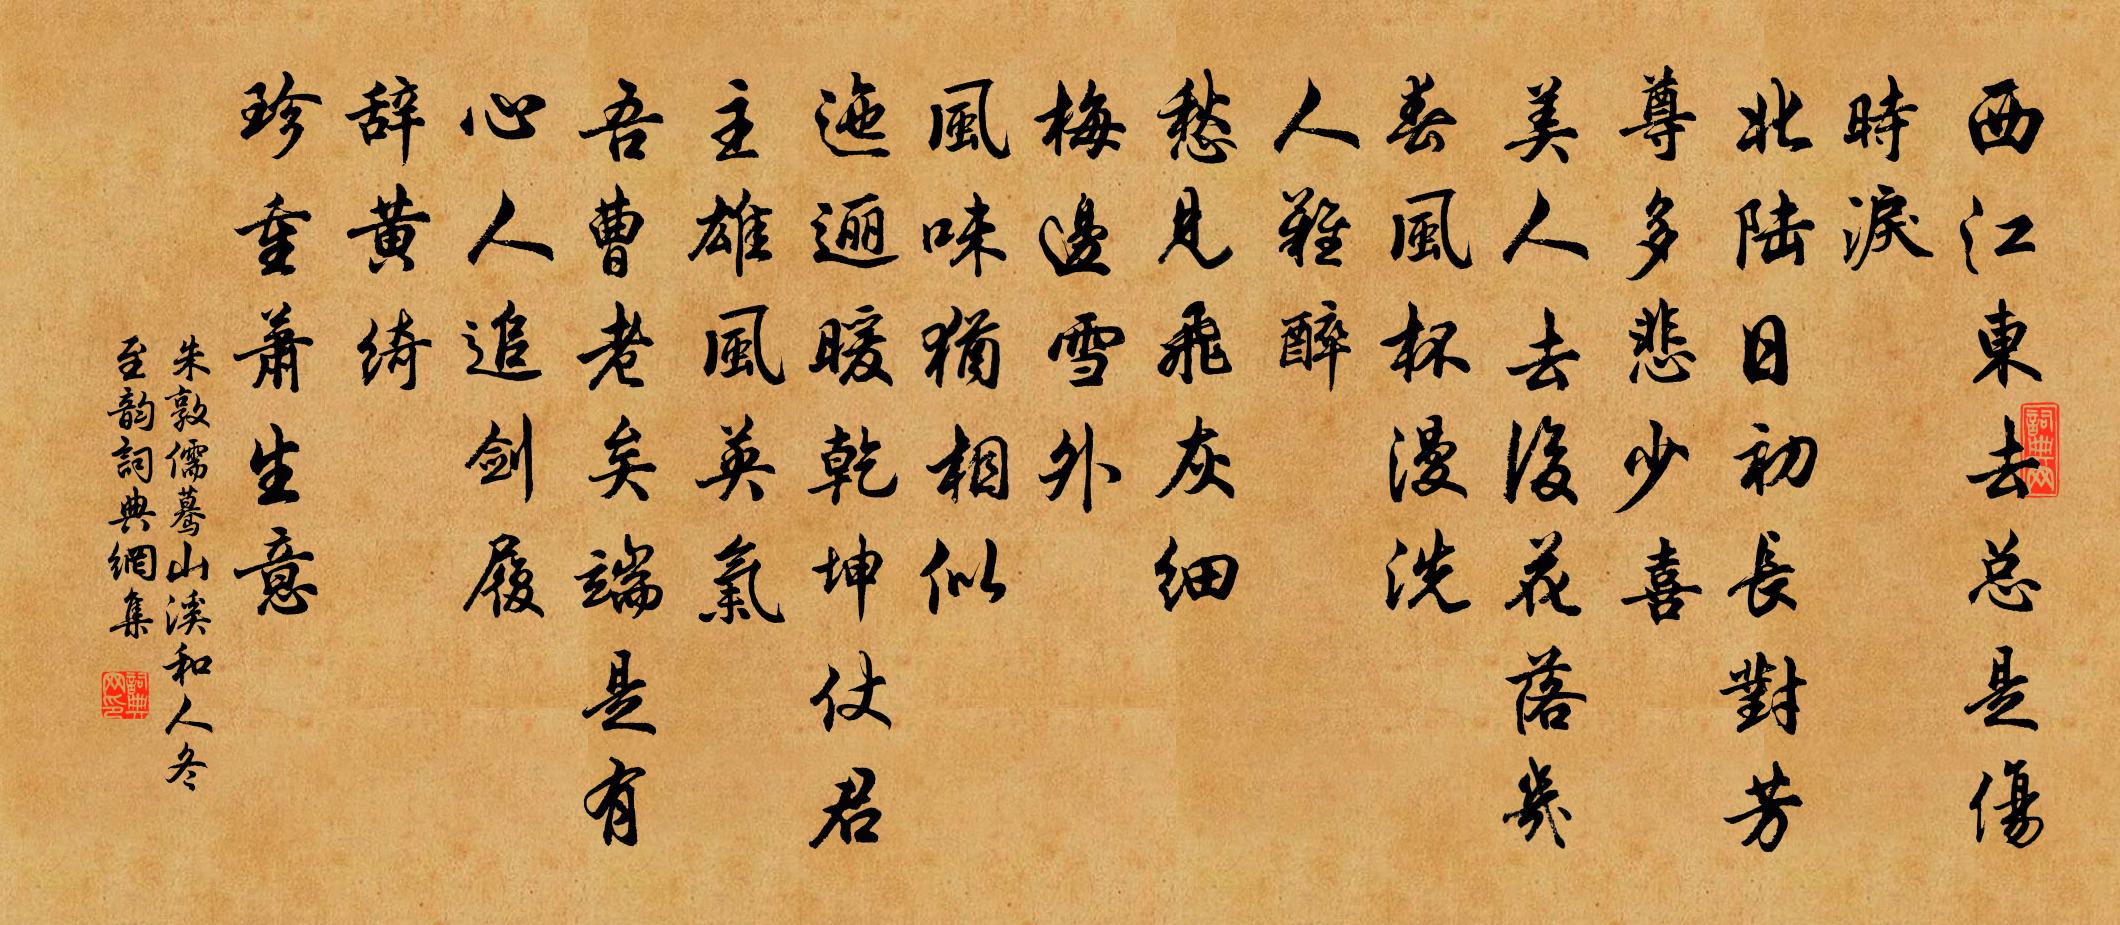 西江東去总是傷
時淚
北陆日初長對芳
尊多悲少喜
美人去後花落幾
春風杯漫洗
人難醉
愁見飛灰细
梅邊雪外
風味猶相似
迤逦暖乾坤仗君
主雄風英氣
吾曹老矣端是有
心人追剑履
辞黄绮
珍重蕭生意
朱敦儒驀山溪和人冬
至韵詞典網集
詞典网
詞典网印